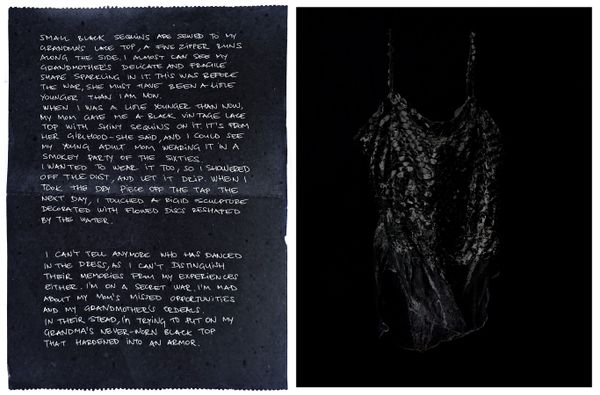 SMALL BLACK SEQUINS ARE SEWED TO MY
GRANDMA'S LACE TOP, A FINE ZIPPER RUNS
ALONG THE SIDE. I ALMOST CAN SEE MY
GRANDMOTHER'S DELICATE AND FRAGILE
SHAPE SPARKLING IN IT. THIS WAS BEFORE
THE WAR, SHE MUST HAVE BEEN A LITTLE
YOUNGER THAN I AM NOW.
WHEN I WAS A LITTLE YOUNGER THAN NOW,
MY MOM GAVE ME A BLACK VINTAGE LACE
TOP WITH SHINY SEQUINS ON IT. IT'S FROM
HER GIRLHOOD - SHE SAID, AND I COULD SEE
MY YOUNG ADULT MOM WEARING IT IN A
SMOKEY PARTY OF THE SIXTIES.
I WANTED TO WEAR IT TOO, SO I SHOWERED
OFF THE DUST, AND LET IT DRIP. WHEN I
TOOK THE DRY PIECE OFF THE TAP THE
NEXT DAY, I TOUCHED A RIGID SCULPTURE
DECORATED WITH FLOWED DISCS RESHAPED
BY THE WATER.
I CAN'T TELL ANYMORE WHO HAS DANCED
IN THE DRESS, AS I CAN'T DISTINGUISH
THEIR MEMORIES FROM MY EXPERIENCES
EITHER. I'M ON A SECRET WAR, I'M MAD
ABOUT MY MOM'S MISSED OPPORTUNITIES
AND MY GRANDMOTHER'S ORDEALS.
IN THEIR STEAD, I'M TRYING TO PUT ON MY
GRANDMA'S NEVER-WORN BLACK TOP
THAT HARDENED INTO AN ARMOR.